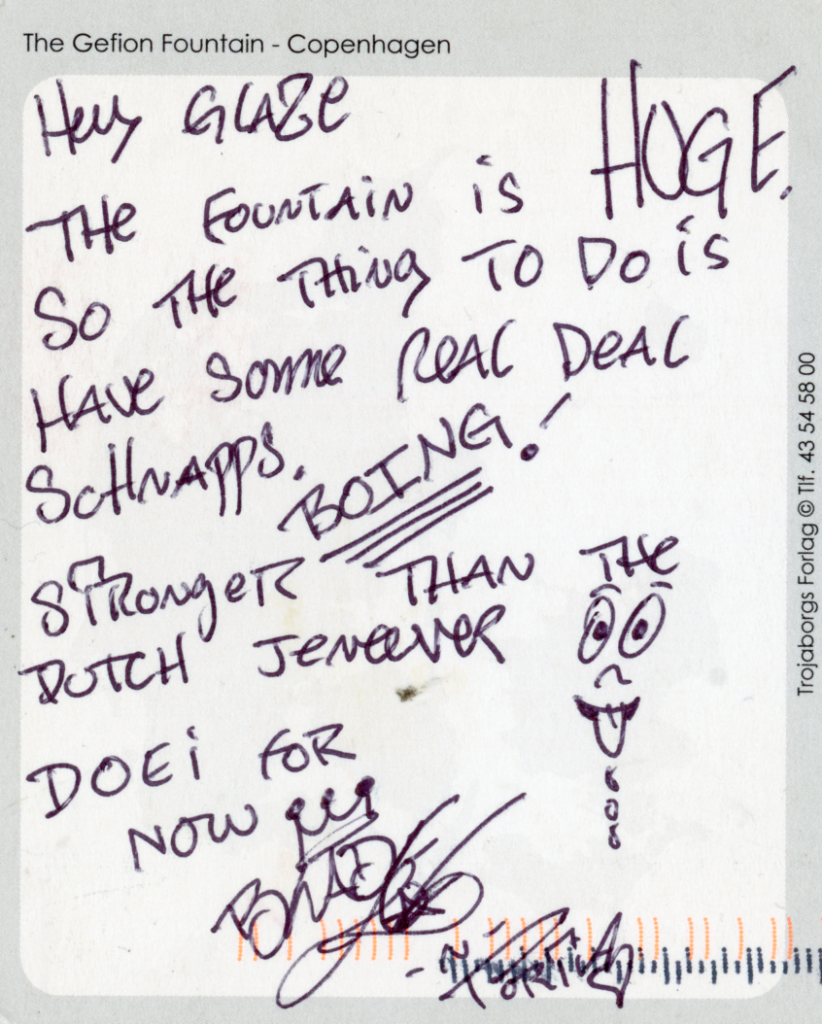 The Gefion Fountain - Copenhagen
Hey GLAZE
THE FOUNTAIN iS HUGE.
SO THE THING TO DO iS
HAVE SOME REAL DEAL
SCHNAPPS.
BOING!
STRONGER THAN THE
DUTCH JENEEVER
DOEi FOR
NOW
Trojaborgs Forlag © Tlf. 43 54 58 00